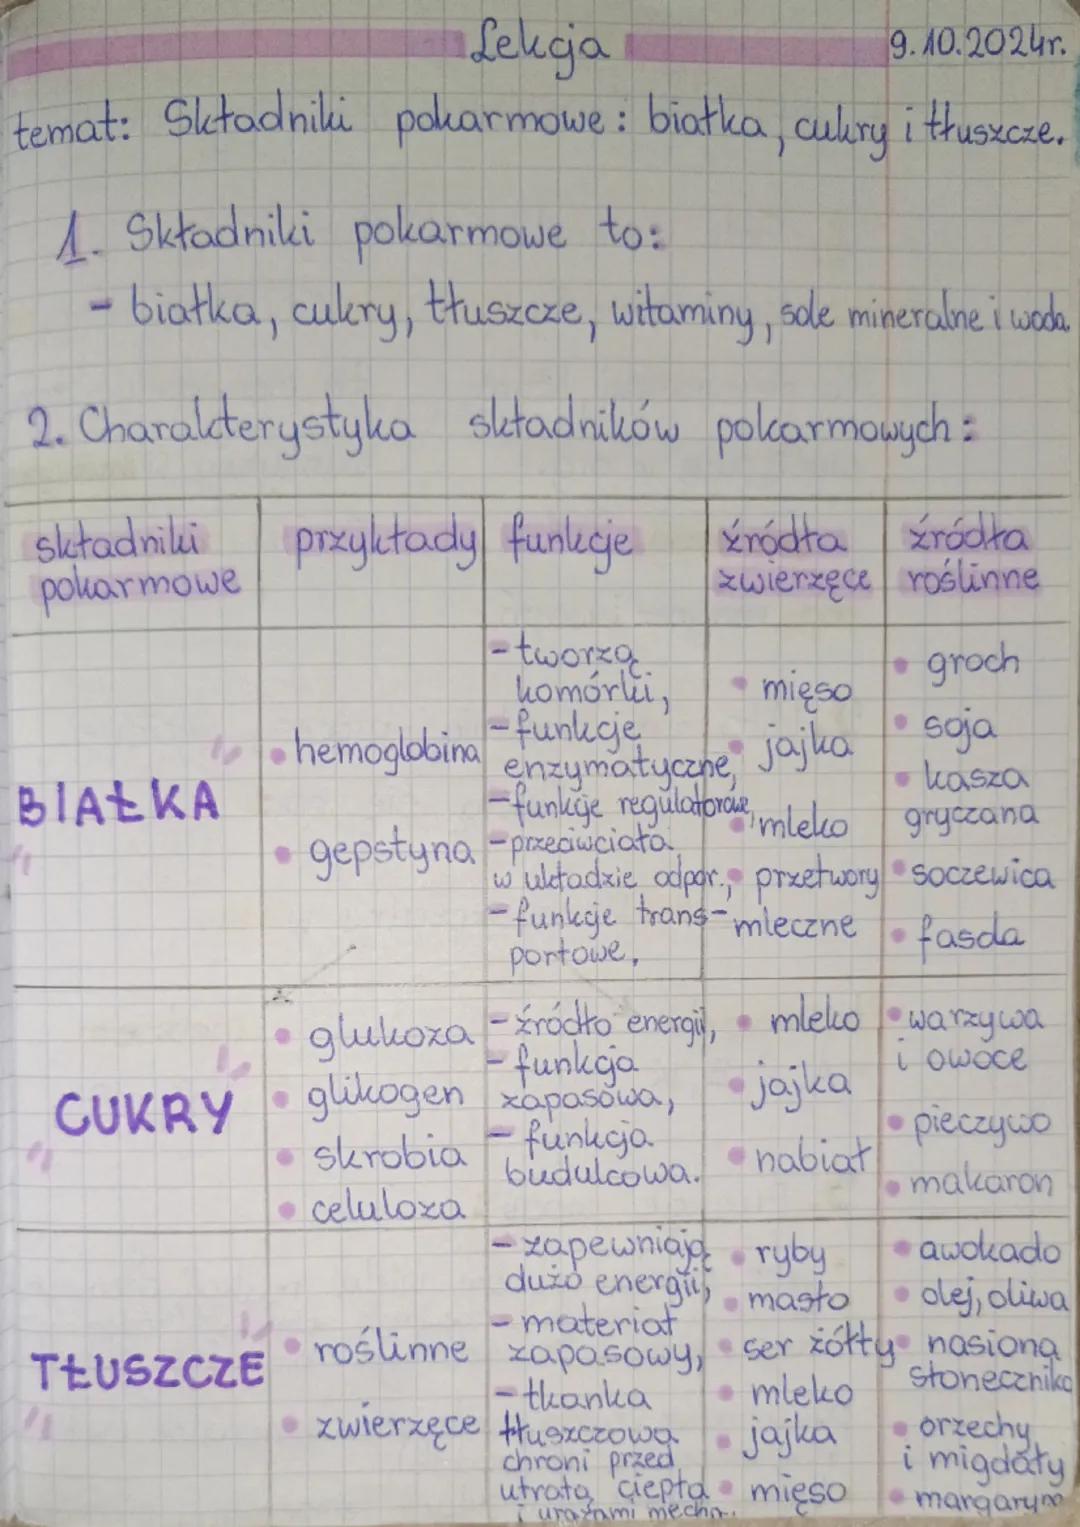 Lekcja
9.10.2024r.
temat: Składniki pokarmowe: białka, cukry i tłuszcze.
1. Składniki pokarmowe to:
- białka, cukry, tłuszcze, witaminy, sole mineralne i woda.
2. Charakterystyka składników pokarmowych:
składniki pokarmowe
przykłady
funkcje
źródła zwierzęce
źródła roślinne
BIAŁKA
• hemoglobina
• gepstyna
- tworzą
komórki,
- funkcje
enzymatyczne,
- funkcje regulatorowe,
- przeciwciała
w układzie odpor.,
- funkcje trans-
portowe,
• mięso
• jajka
• mleko
• przetwory
mleczne
• groch
• soja
• kasza
gryczana
• soczewica
• fasola
CUKRY
• glukoza
• glikogen
• skrobia
• celuloza
- źródło energii,
- funkcja
zapasowa,
- funkcja
budulcowa.
• mleko
• jajka
• nabiał
• warzywa
i owoce
• pieczywo
• makaron
TŁUSZCZE
• roślinne
• zwierzęce
- zapewniają
dużo energii,
- materiał
zapasowy,
- tkanka
tłuszczowa
chroni przed
utratą ciepła
i urazami mechn.
• ryby
• masło
• ser żółty
• mleko
• jajka
• mięso
• awokado
• olej, oliwa
• nasiona
słonecznika
• orzechy
i migdały
• margaryna